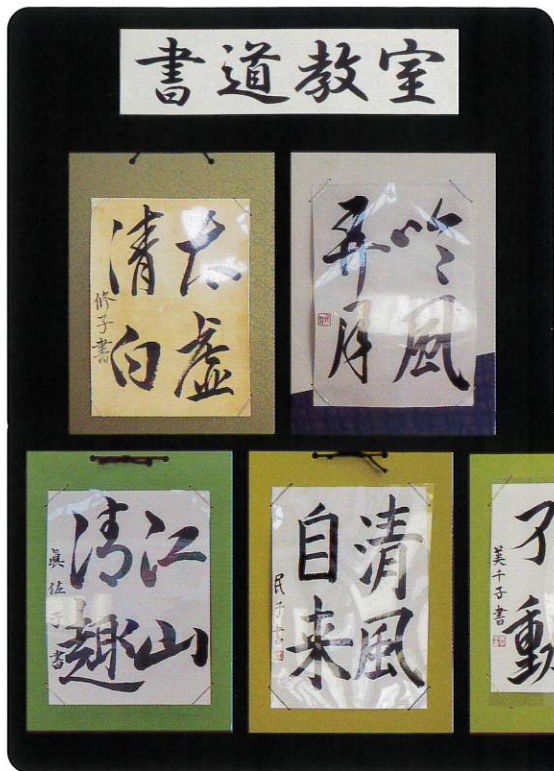 書道教室
太虚
清白
修子書
吟風
弄月
江山
清趣
眞佐子書
清風
自来
民子書
動
美千子書